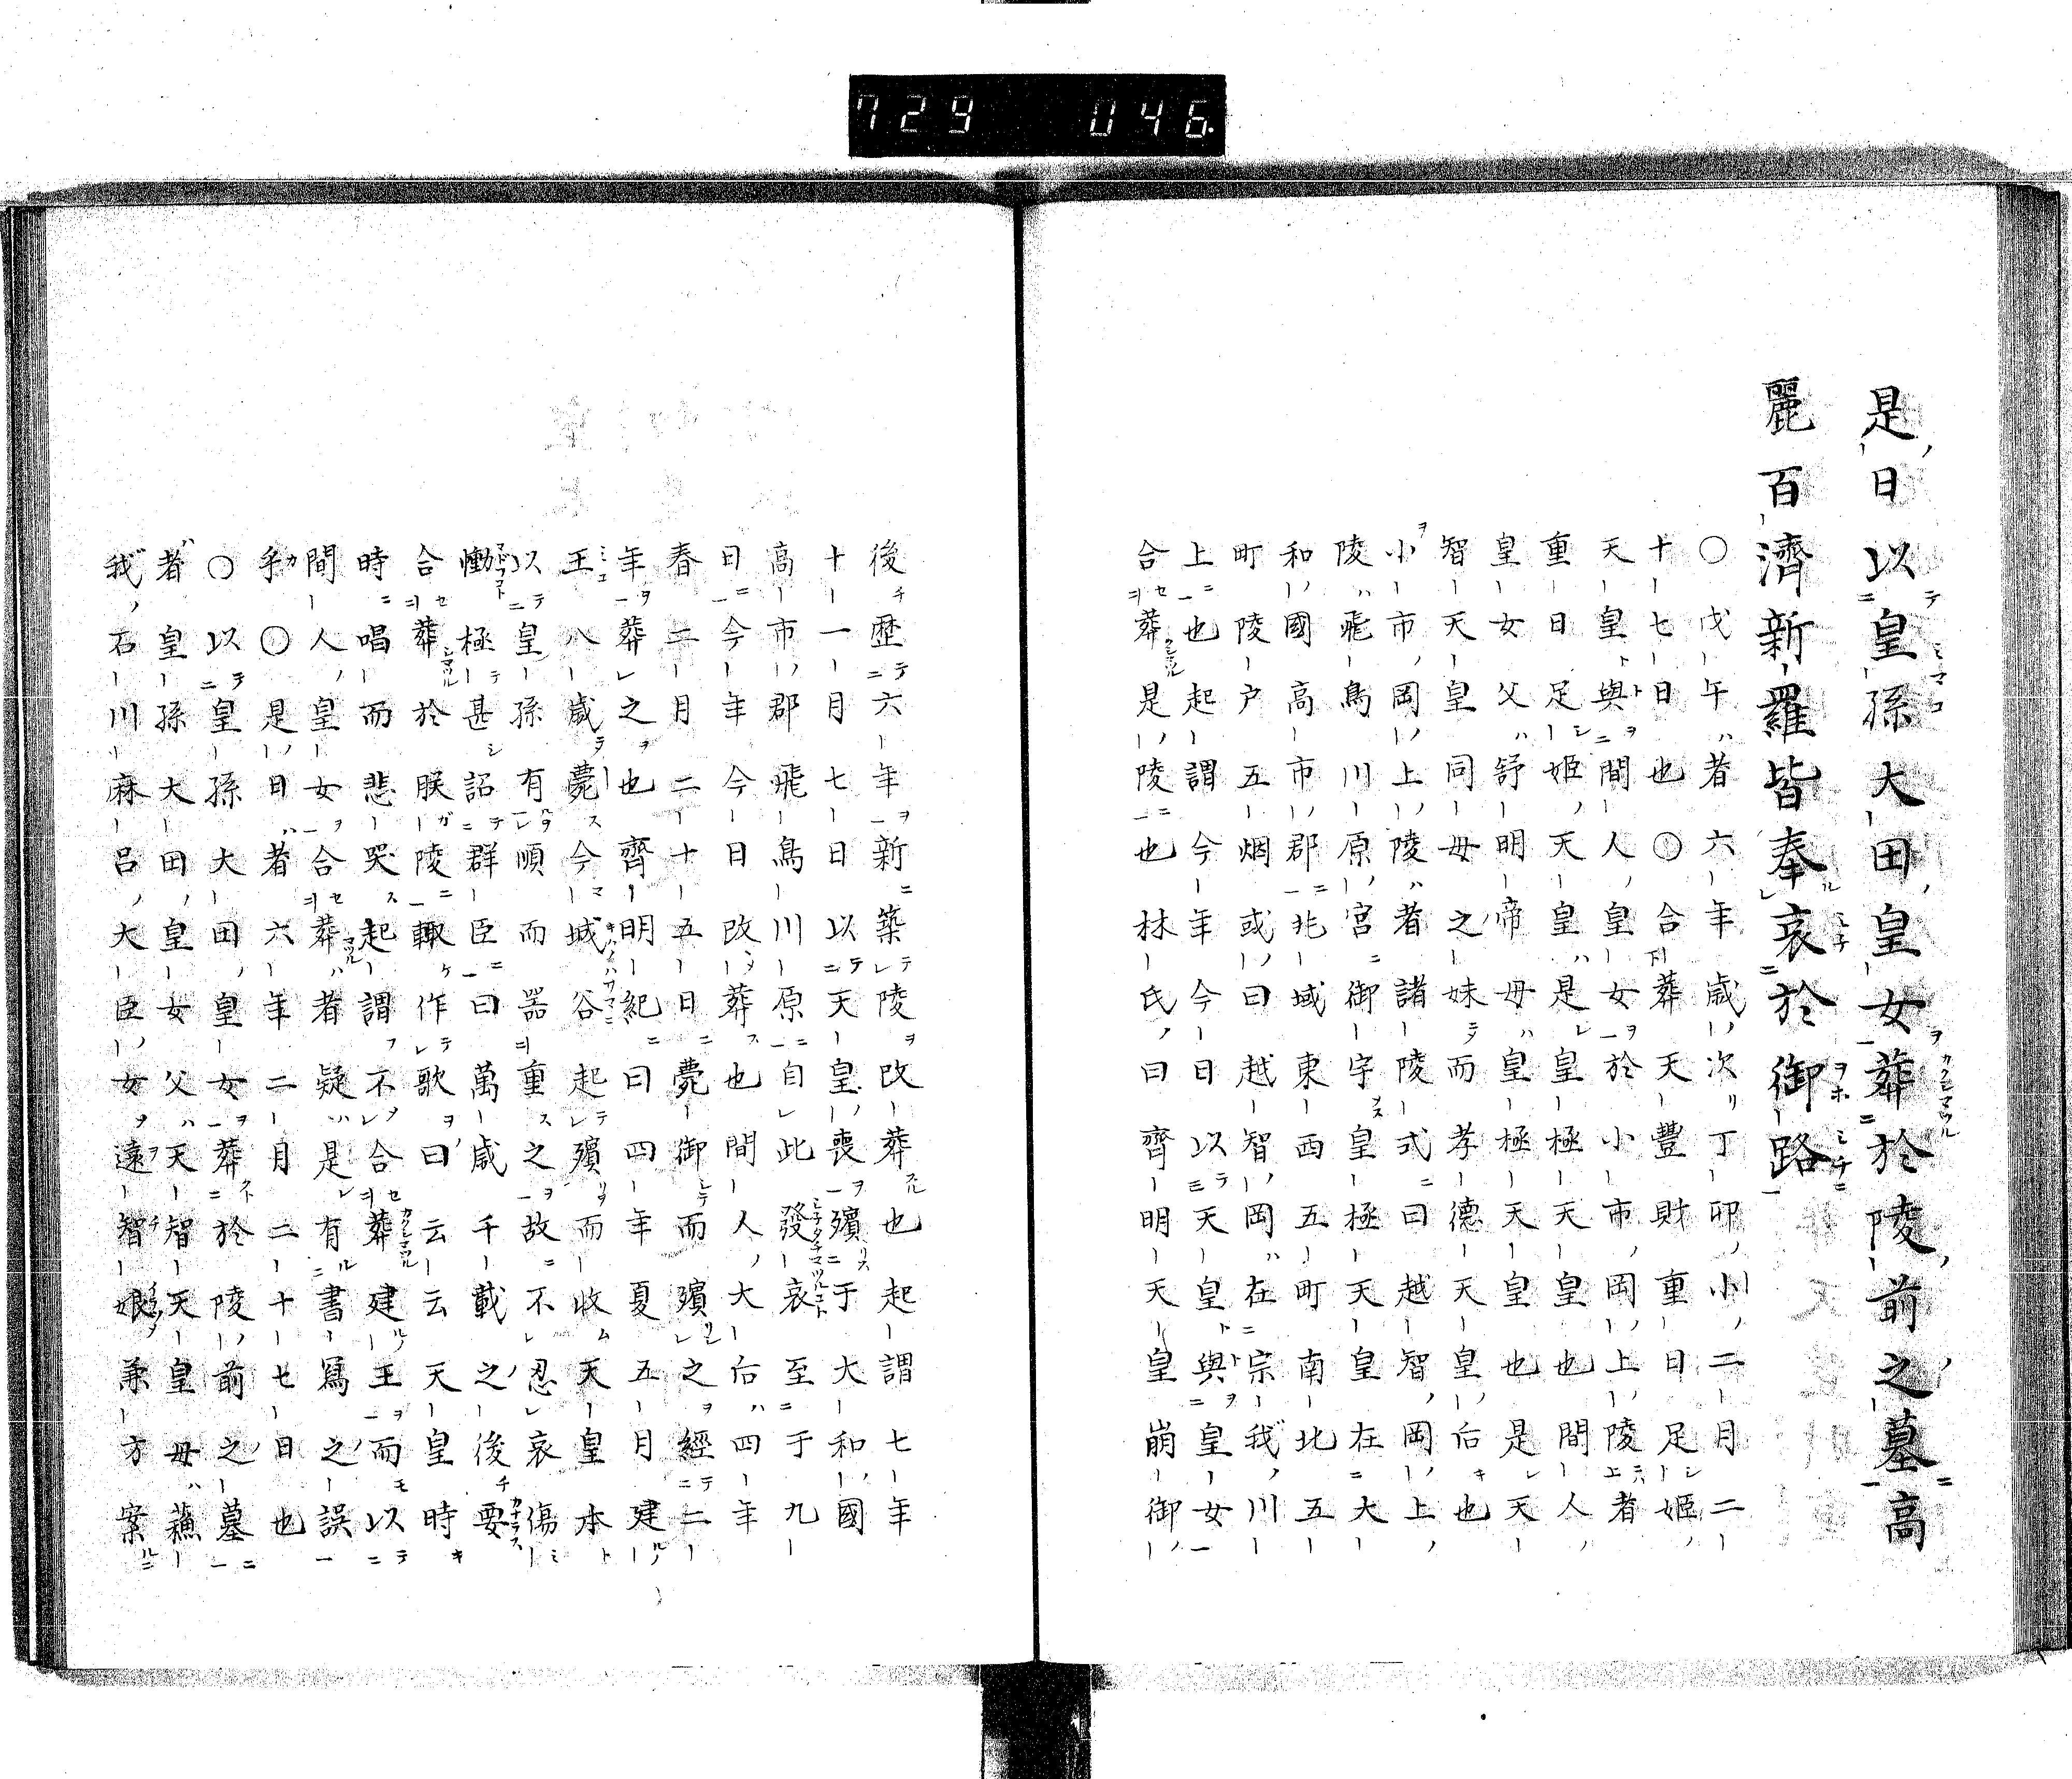 729 046
是日以皇孫大田皇女葬於陵前之墓高
麗百濟新羅皆奉哀於御路
○戊午者六年歳次丁卯小二月二
十七日也○合葬天豐財重日足姫
天皇與間人皇女於小市岡上陵者
重日足姫天皇是皇極天皇也間人
皇女父舒明帝母皇極天皇也是天
智天皇同母之妹而孝德天皇后也
小市岡上陵者諸陵式曰越智岡上
陵飛鳥川原宮御宇皇極天皇在大
和國高市郡兆域東西五町南北五
町陵戸五烟或曰越智岡在宗我川
上也起謂今年今日以天皇與皇女
合葬是陵也林氏曰齊明天皇崩御
後歴六年新築陵改葬也起謂七年
十一月七日以天皇喪殯于大和國
高市郡飛鳥川原自此發哀至于九
日今年今日改葬也間人大后四年
春二月二十五日薨御而殯之經二
年葬之也齊明紀曰四年夏五月建
王八歳薨今城谷起殯而收天皇本
以皇孫有順而器重之故不忍哀傷
慟極甚詔群臣曰萬歳千載之後要
合葬於朕陵輙作歌曰云云天皇時
時唱而悲哭起謂不合葬建王而以
間人皇女合葬者疑是有書寫之誤
乎○是日者六年二月二十七日也
○以皇孫大田皇女葬於陵前之墓
者皇孫大田皇女父天智天皇母蘓
我石川麻呂大臣女遠智娘兼方案